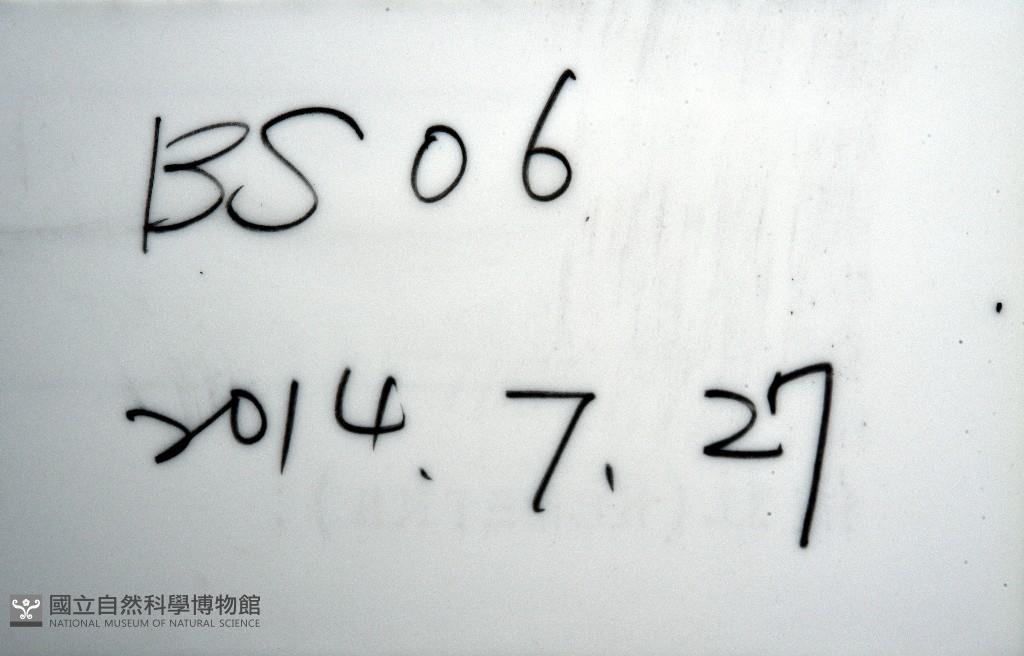 BS 06
2014. 7. 27
國立自然科學博物館
NATIONAL MUSEUM OF NATURAL SCIENCE